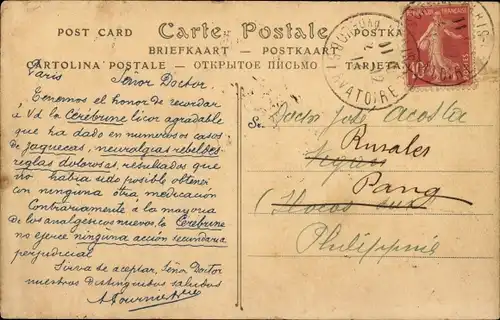 POST CARD
Carte Postale
BRIEFKAART — POSTKAART
CARTOLINA POSTALE — ОТКРЫТОЕ ПІСЬМО — TARJETA
10
POSTES
Paris
Señor Doctor
Tenemos el honor de recordar
à Vd la Cérébrine licor agradable
que ha dado en numerosos casos
de jaquecas, neuralgias rebeldes
reglas dolorosas, resultados que
no habia sido posible obtener
con ninguna otra medicación
Contrariamente á la mayoria
de los analgésicos nuevos, la Cérébrine
no ejerce ninguna acción secundaria
perjudicial
Sirva se aceptar, Señor Doctor
nuestros distinguidos saludos
Sr. Doctor José Acosta
Rurales
Pang
Ilocos sur
Philippine